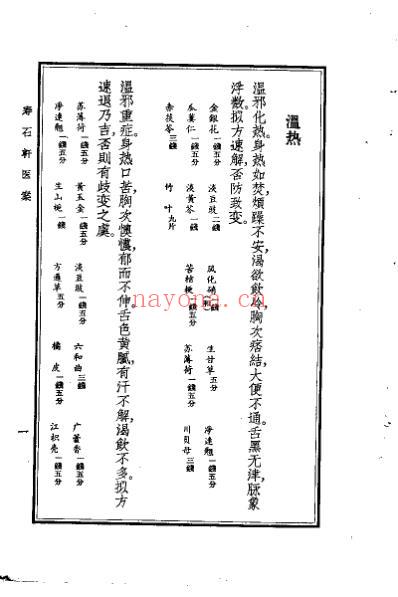 溫热
溫邪化熱，身熱如焚，煩躁不安，渴欲飲冷，胸次痞結，大便不通。舌黑无津，脉象
浮數。拟方速解，否防致变。
金銀花一錢五分 淡豆豉二錢 風化硝 生甘草五分 净連翹一錢五分
瓜蔞仁一錢五分 淡黄芩一錢五分 苦桔梗 苏薄荷一錢五分 川貝母三錢
赤茯苓三錢 竹叶九片
溫邪重症，身热口苦，胸次懊憹，郁而不伸，舌色黄膩，有汗不解，渴飲不多。拟方
速退乃吉，否則有歧变之虞。
苏薄荷一錢五分 黄玉金一錢 淡豆豉一錢五分 六和曲三錢 广藿香一錢五分
净連翹一錢五分 生山梔一錢 方通草五分 橘皮一錢五分 江枳壳一錢五分
寿石軒医案
一
nayona.cn